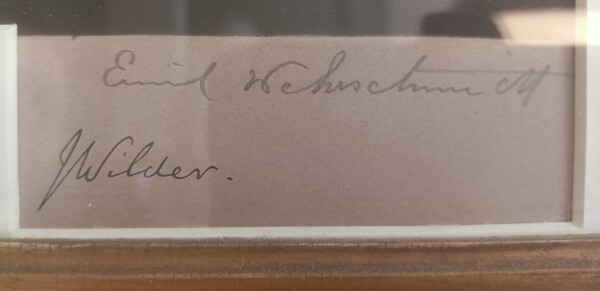 Emil Wehrschmidt
JWilder.